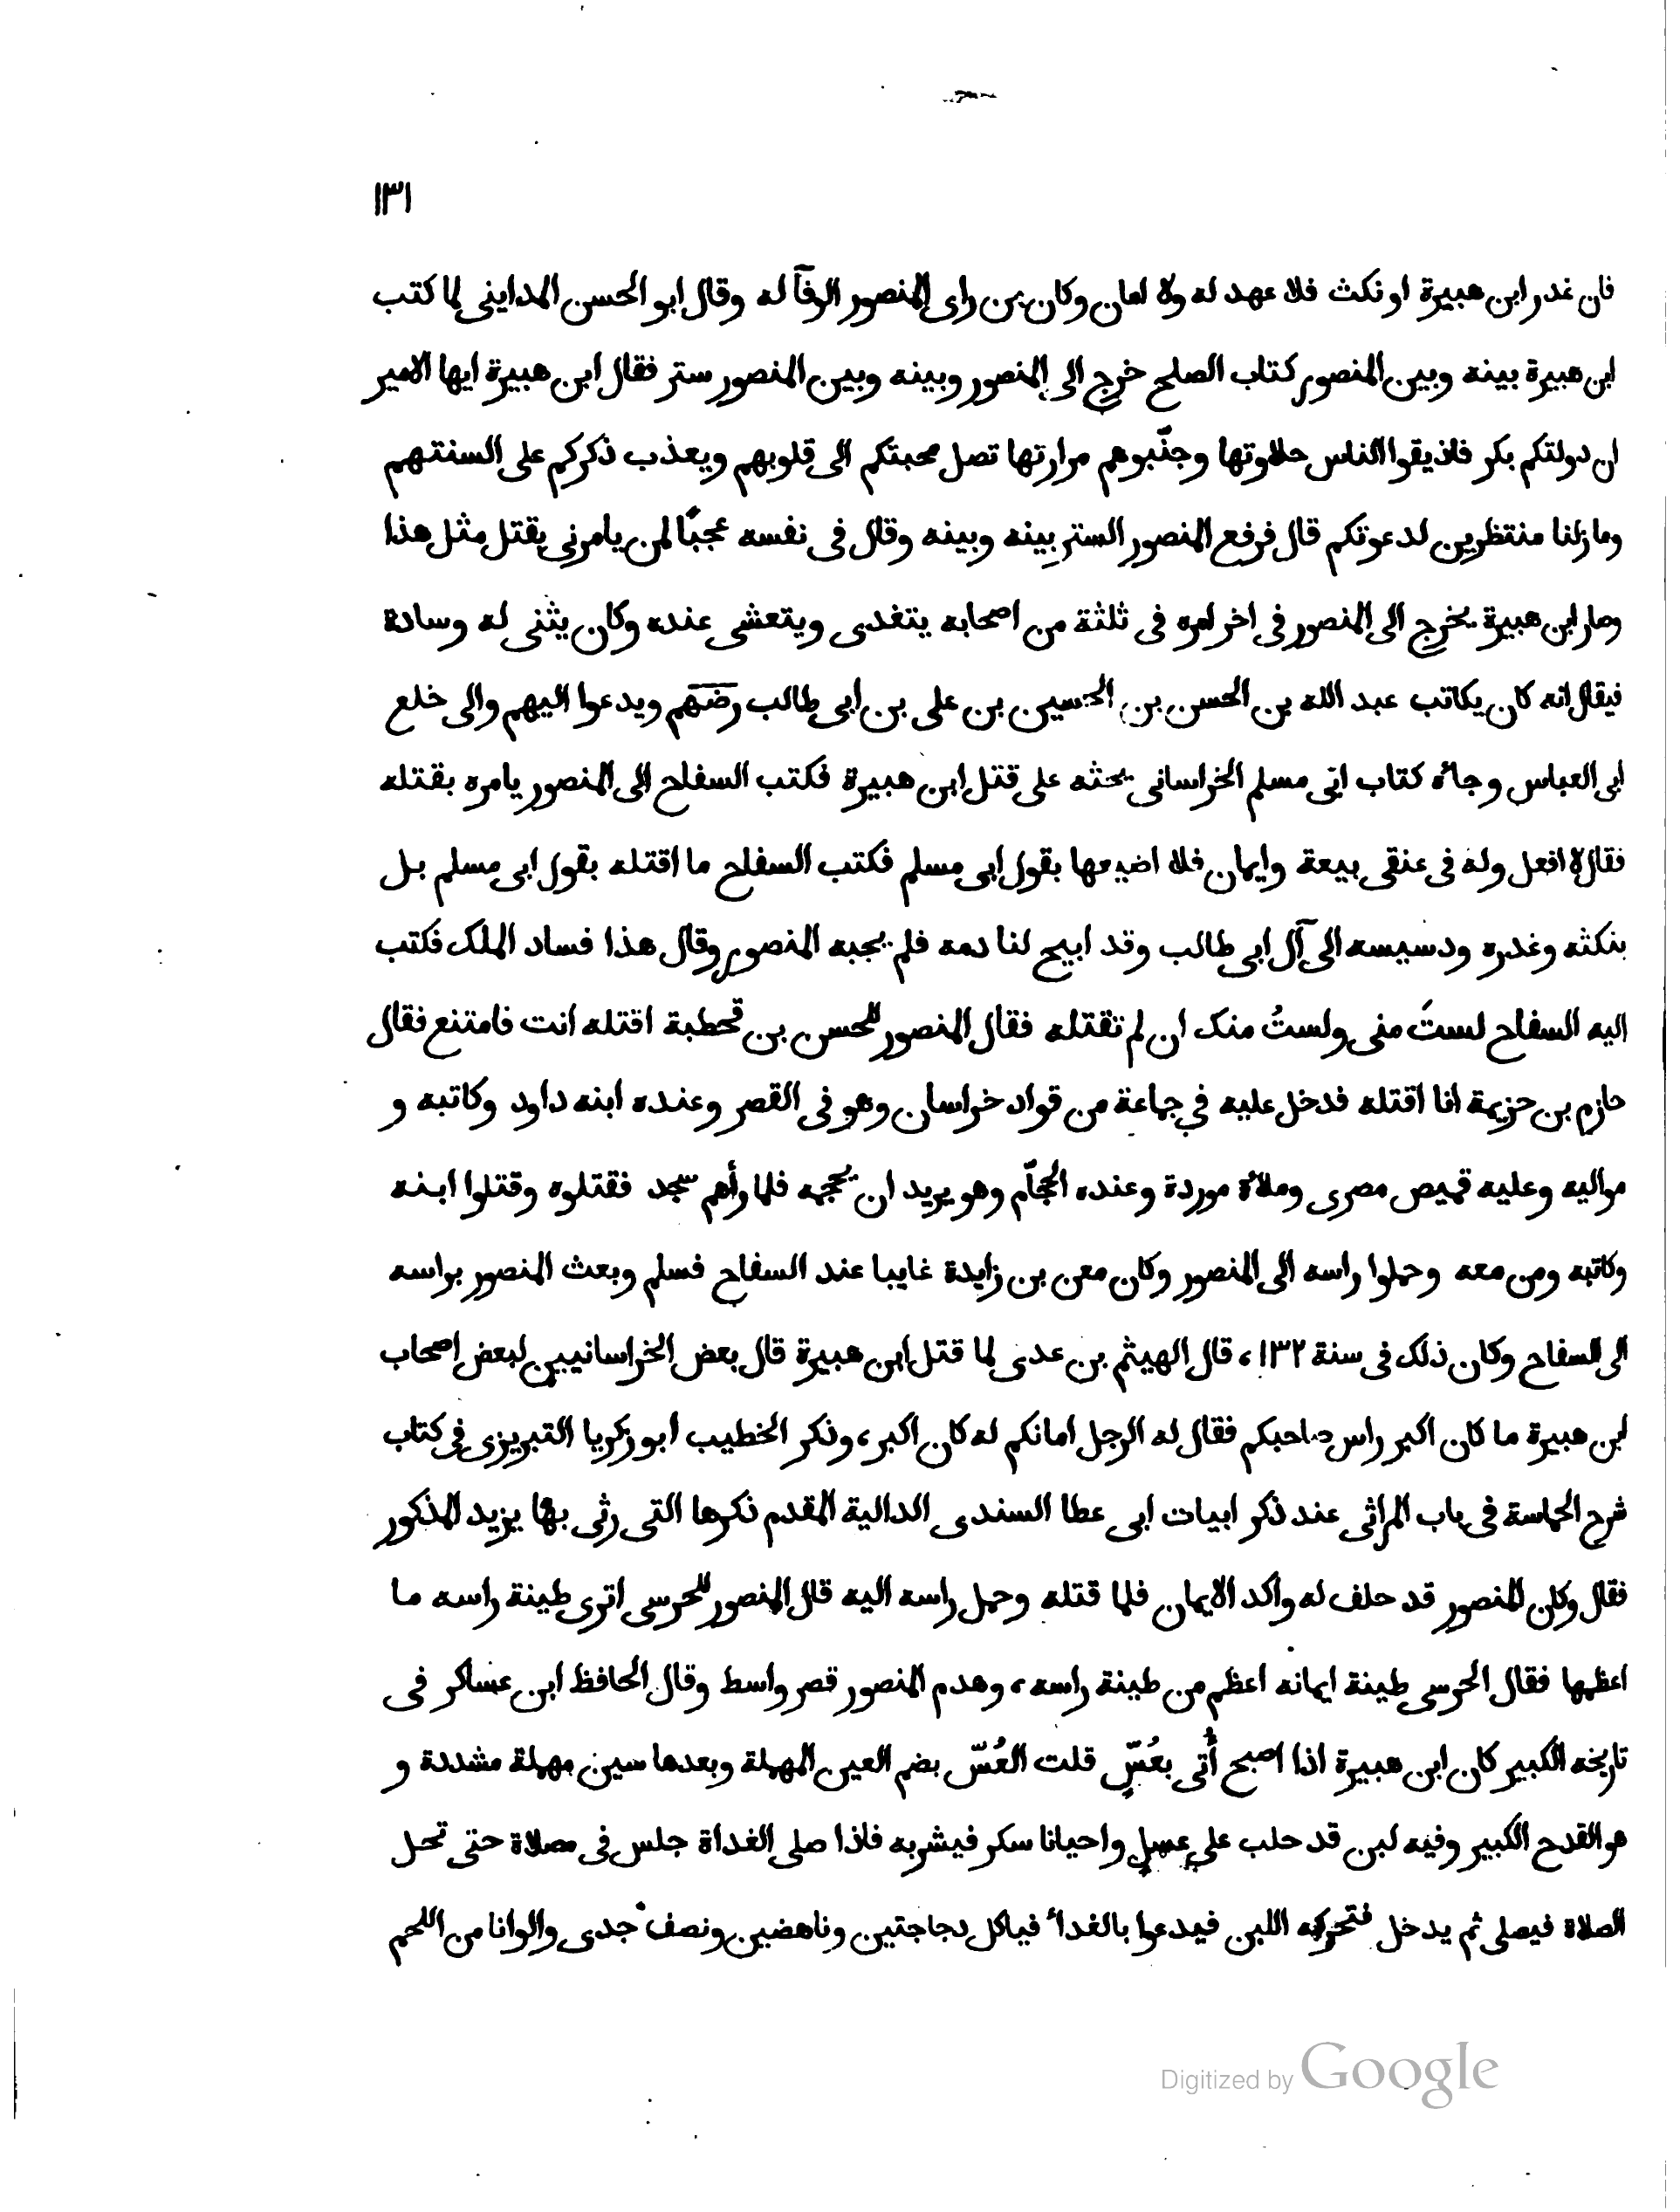 ١٣١
فان غدر ابن هبيرة او نكث فلا عهد له ولا امان وكان من راى المنصور الوفآ له وقال ابو الحسن المداينى لما كتب
ابن هبيرة بينه وبين المنصور كتاب الصلح خرج الى المنصور وبينه وبين المنصور ستر فقال ابن هبيرة ايها الامير
ان دولتكم بكر فاذيقوا الناس حلاوتها وجنّبوهم مرارتها تصل محبتكم الى قلوبهم ويعذب ذكركم على السنتهم
وما زلنا منتظرين لدعوتكم قال فرفع المنصور الستر بينه وبينه وقال فى نفسه عجبًا لمن يامرنى بقتل مثل هذا
وصار ابن هبيرة يخرج الى المنصور فى اخر امره فى ثلثة من اصحابه يتغدى ويتعشى عنده وكان يثنى له وسادة
فيقال انه كان يكاتب عبد الله بن الحسن بن الحسين بن على بن ابى طالب رضهم ويدعوا اليهم والى خلع
ابى العباس وجاه كتاب ابى مسلم الخراسانى يحثه على قتل ابن هبيرة فكتب السفاح الى المنصور يامره بقتله
فقال لا افعل وله فى عنقى بيعة وايمان فلا اضيعها بقول ابى مسلم فكتب السفاح ما اقتله بقول ابى مسلم بل
بنكثه وغدره ودسيسه الى آل ابى طالب وقد ابيح لنا دمه فلم يجبه المنصور وقال هذا فساد الملك فكتب
اليه السفاح لستَ منى ولستُ منك ان لم تقتله فقال المنصور للحسن بن قحطبة اقتله انت فامتنع فقال
حازم بن حزيمة انا اقتله فدخل عليه في جماعة من قواد خراسان وهو فى القصر وعنده ابنه داود وكاتبه و
مواليه وعليه قميص مصرى وملاة موردة وعنده الحجّام وهو يريد ان يحجمه فلما رأهم سجد فقتلوه وقتلوا ابنه
وكاتبه ومن معه وحملوا راسه الى المنصور وكان معن بن زايدة غايبا عند السفاح فسلم وبعث المنصور براسه
الى السفاح وكان ذلك فى سنة ١٣٢، قال الهيثم بن عدى لما قتل ابن هبيرة قال بعض الخراسانيين لبعض اصحاب
ابن هبيرة ما كان اكبر راس صاحبكم فقال له الرجل امانكم له كان اكبر، وذكر الخطيب ابو زكريا التبريزى فى كتاب
شرح الحماسة فى باب المراثى عند ذكر ابيات ابى عطا السندى الدالية المقدم ذكرها التى رثى بها يزيد المذكور
فقال وكان المنصور قد حلف له واكد الايمان فلما قتله وحمل راسه اليه قال المنصور للحرسى اترى طينة راسه ما
اعظمها فقال الحرسى طينة ايمانه اعظم من طينة راسه، وهدم المنصور قصر واسط وقال الحافظ ابن عساكر فى
تاريخه الكبير كان ابن هبيرة اذا اصبح أُتى بعُسّ قلت العُسّ بضم العين المهملة وبعدها سين مهملة مشددة و
هو القدح الكبير وفيه لبن قد حلب على عسل واحيانا سكر فيشربه فاذا صلى الغداة جلس فى مصلاة حتى تحل
الصلاة فيصلى ثم يدخل فتحركه اللبن فيدعوا بالغدا٬ فياكل دجاجتين وناهضين ونصف جدى والوانا من اللحم
Digitized by Google